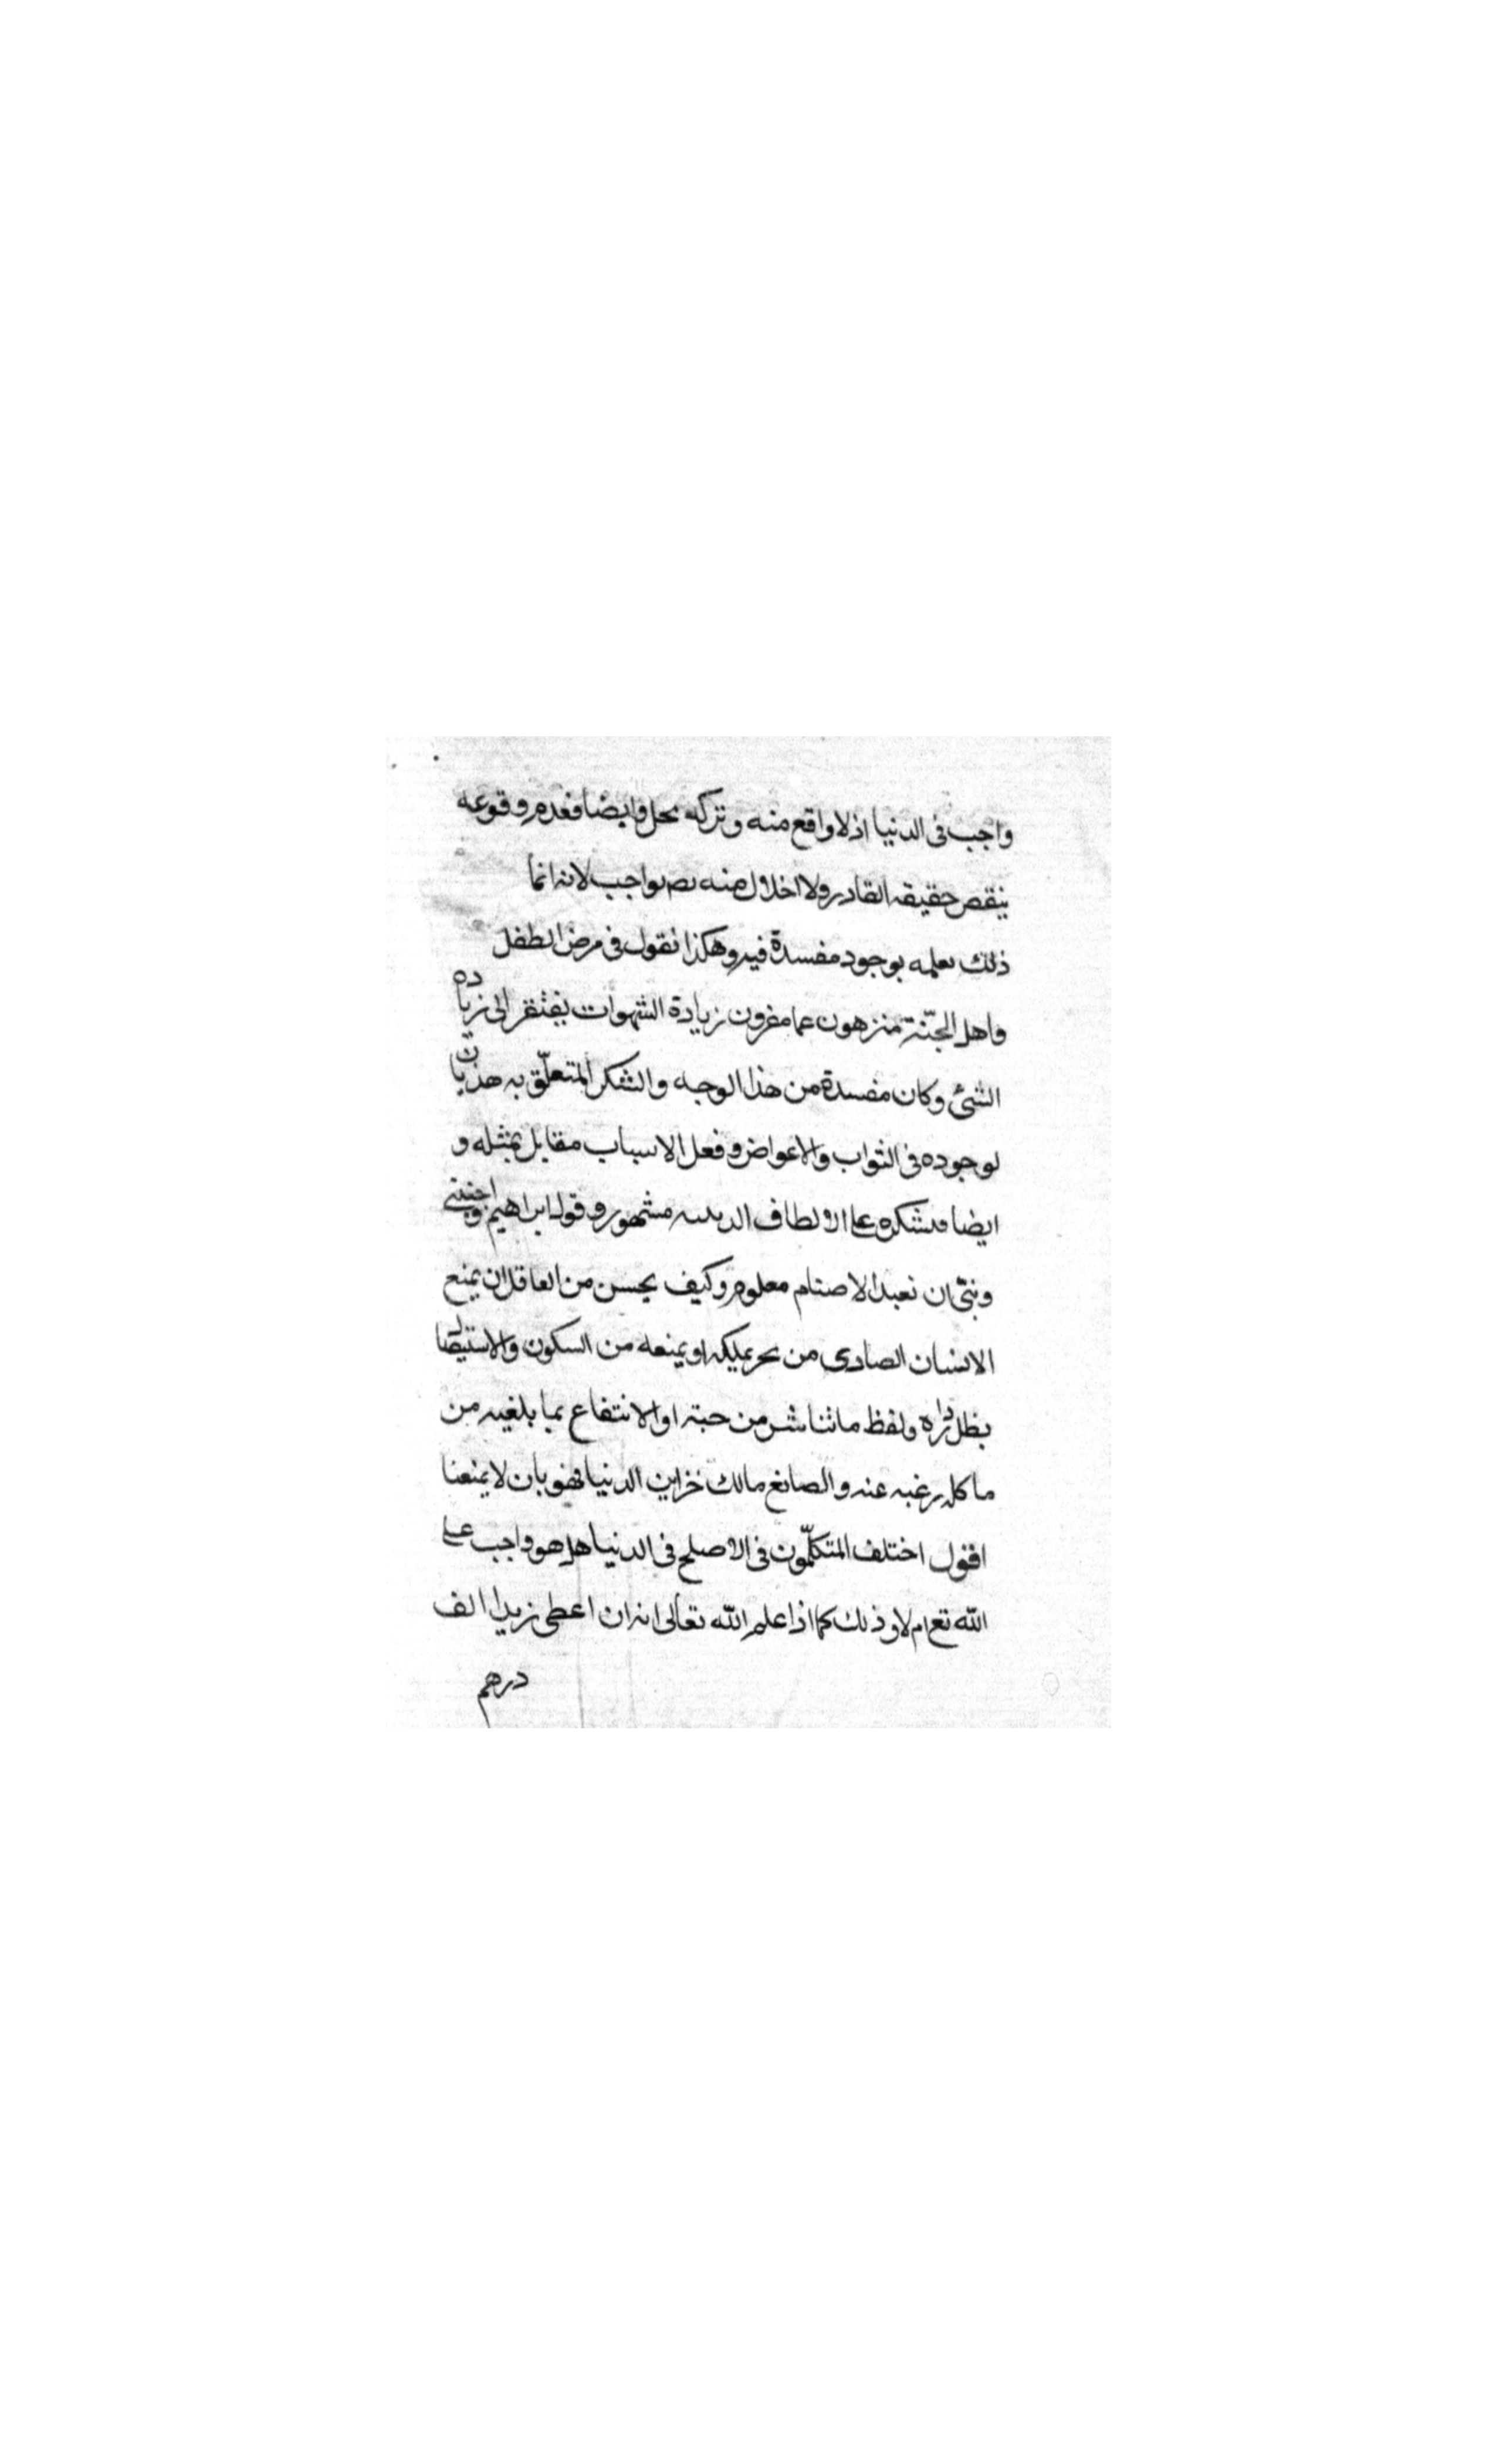 واجب فى الدنيا اذلا واقع منه وتركه بخل وايضا فعدم وقوعه
ينقص حقيقه القادر ولا اخلال منه بواجب لانه انما
ذلك بعلمه بوجود مفسدة فيه وهكذا نقول فى مرض الطفل
واهل الجنّة منزهون عما مفرون زيادة الشهوات يفتقر الى زياده
الشئ وكان مفسدة من هذا الوجه والشكر المتعلّق به هذيان
لوجوده فى الثواب والاعواض وفعل الاسباب مقابل بمثله و
ايضا على الالطاف مشهور وقول ابراهيم واجنبنى
وبنىّ ان نعبد الاصنام معلوم وكيف يحسن من العاقل ان يمنع
الانسان الصادى من بحر يملكه او يمنعه من السكون والاستيصا
بظل داره ولفظ ما تناثر من حبته او الانتفاع بما يلغيه من
ماكله رغبه عنه والصانع مالك خزاين الدنيا فهو بان لا يمنعنا
اقول اختلف المتكلّمون فى الاصلح فى الدنيا هل هو واجب على
الله تع ام لا وذلك كما اذا علم الله تعالى انه ان اعطى زيدا الف
درهم